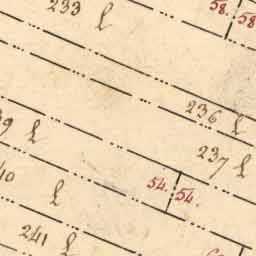 233 l
58. 58
236 l
9 l
237 l
40 l
54. 54.
241 l